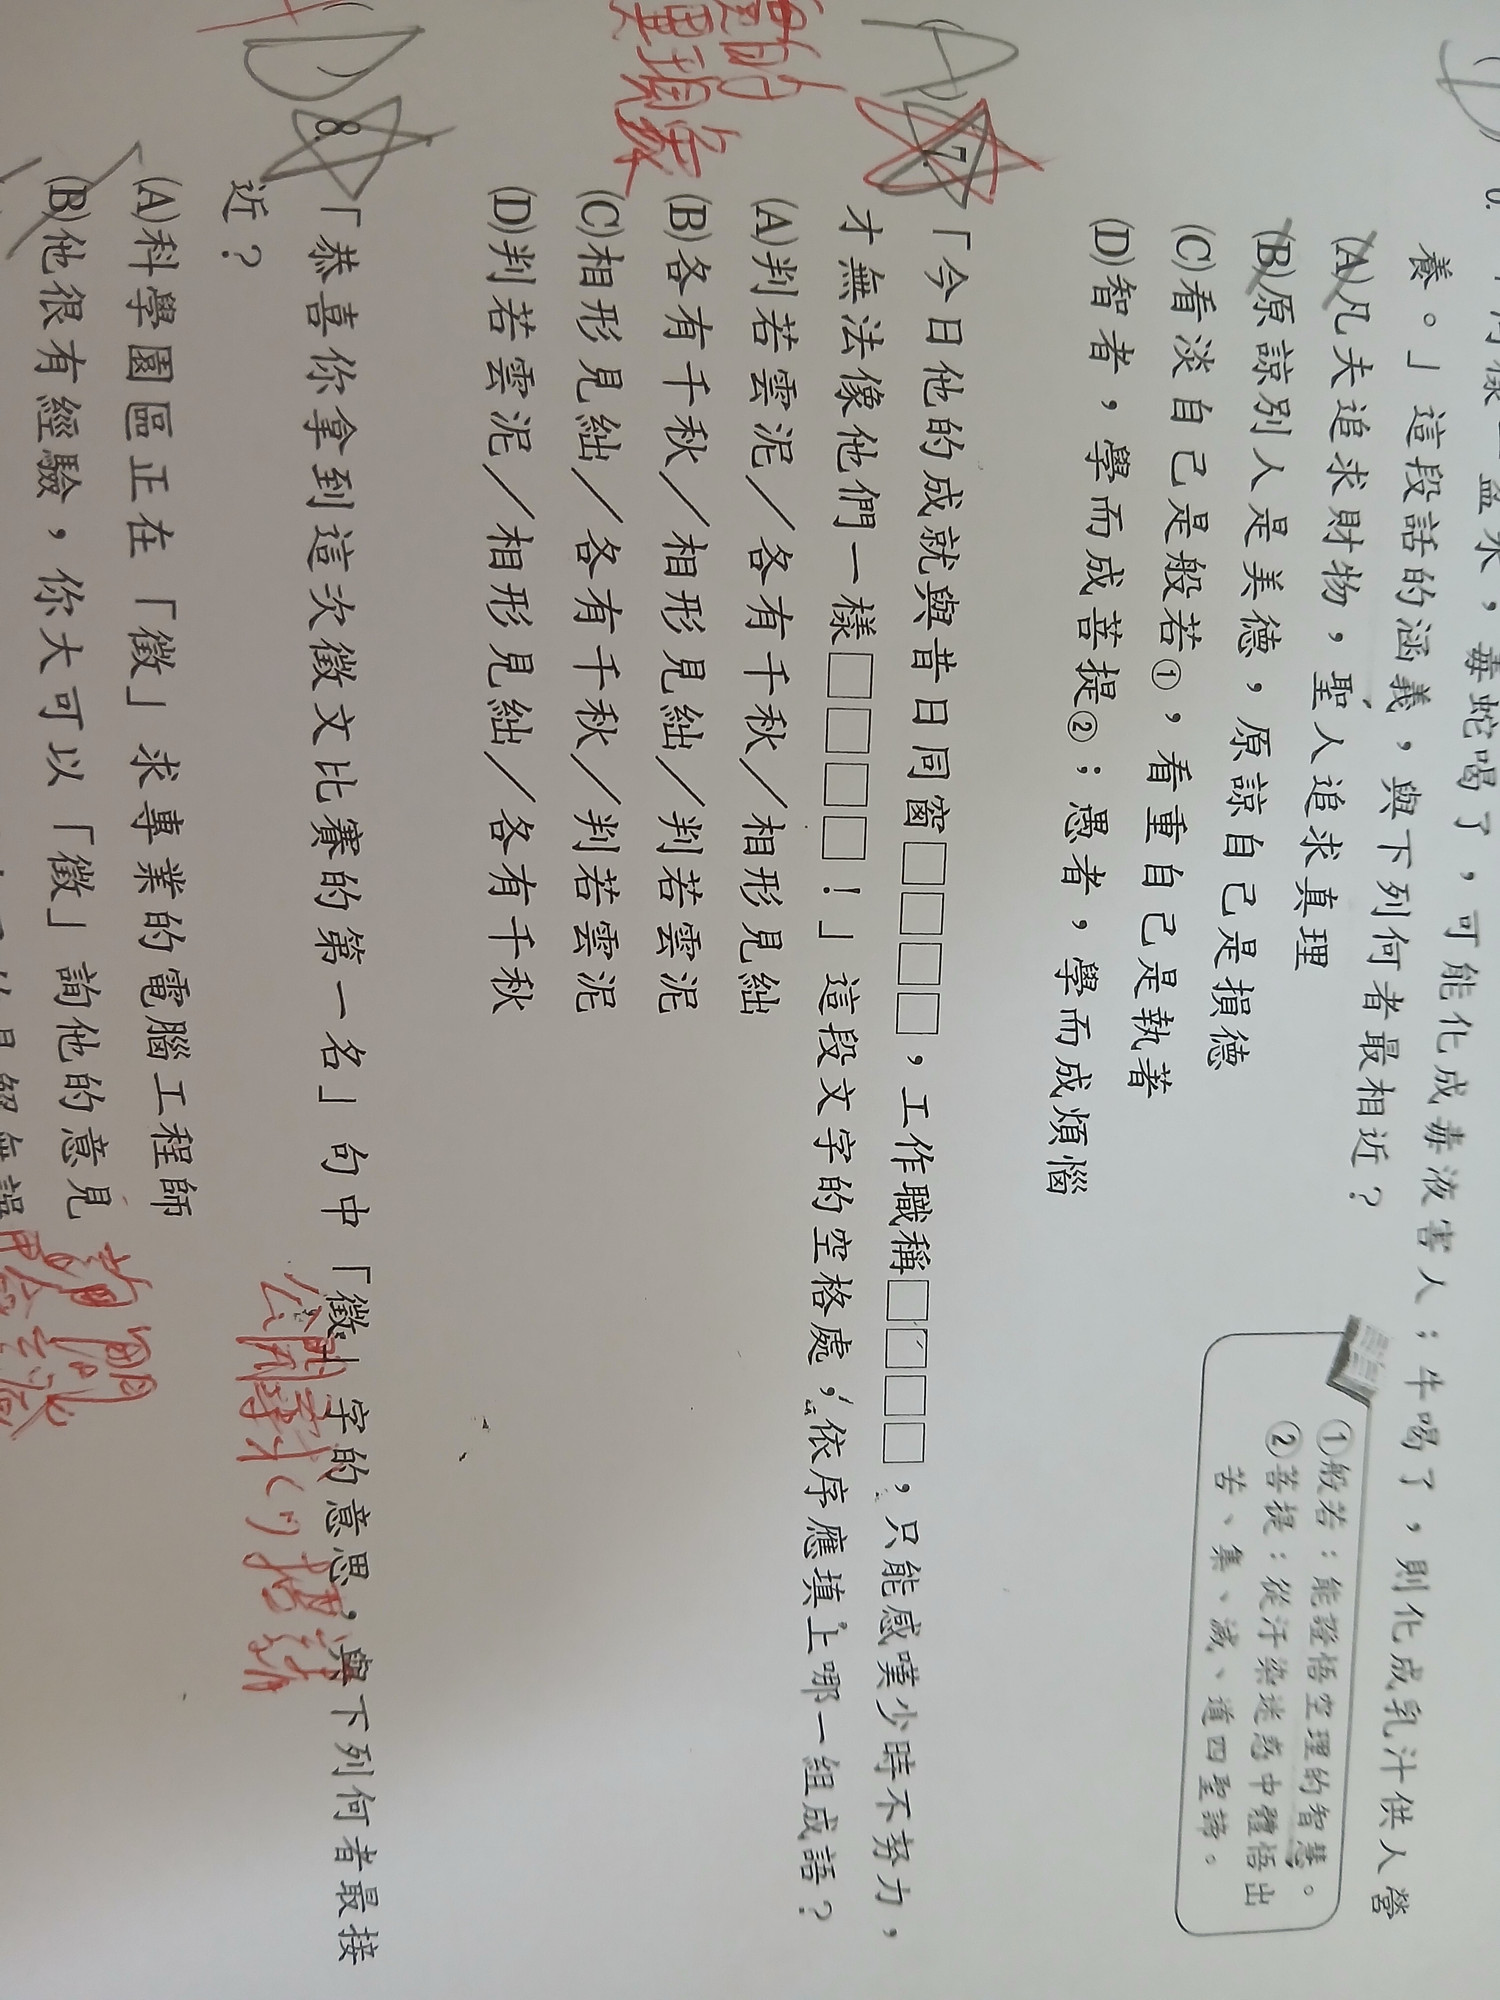 養。」這段話的涵義，與下列何者最相近？
(A)凡夫追求財物，聖人追求真理
(B)原諒別人是美德，原諒自己是損德
(C)看淡自己是般若①，看重自己是執著
(D)智者，學而成菩提②；愚者，學而成煩惱
①般若：能證悟空理的智慧。
②菩提：從汙染迷惑中體悟出
苦、集、滅、道四聖諦。
A
7.「今日他的成就與昔日同窗□□□□，工作職稱□□□□，只能感嘆少時不努力，
才無法像他們一樣□□□□！」這段文字的空格處，依序應填上哪一組成語？
(A)判若雲泥／各有千秋／相形見絀
(B)各有千秋／相形見絀／判若雲泥
(C)相形見絀／各有千秋／判若雲泥
(D)判若雲泥／相形見絀／各有千秋
D
8.「恭喜你拿到這次徵文比賽的第一名」句中「徵」字的意思，與下列何者最接
近？
公開尋求(ㄑ)招請
(A)科學園區正在「徵」求專業的電腦工程師
(B)他很有經驗，你大可以「徵」詢他的意見
詢問